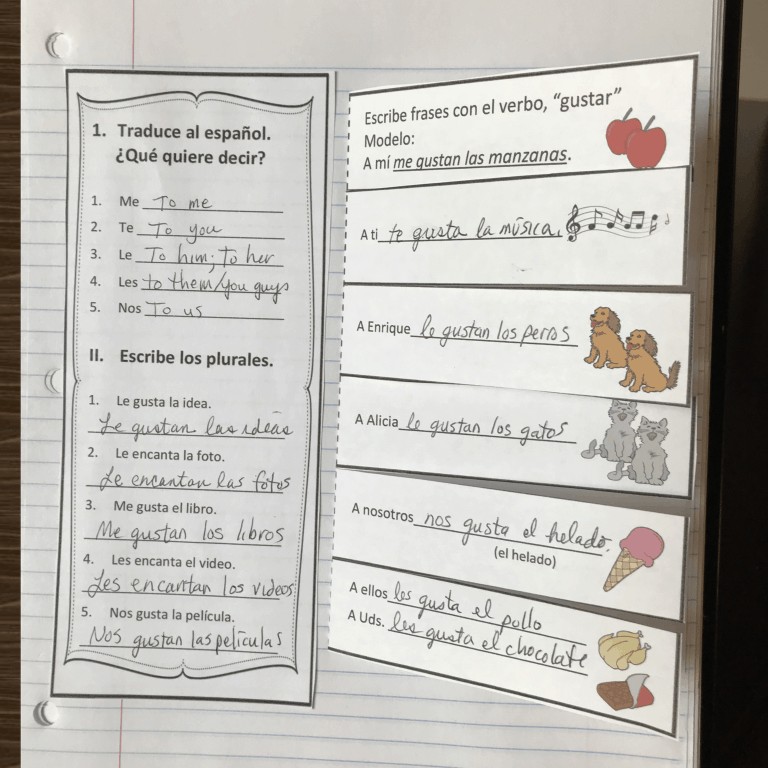 1. Traduce al español.
¿Qué quiere decir?
1. Me To me
2. Te To you
3. Le To him; to her
4. Les to them/you guys
5. Nos To us
II. Escribe los plurales.
1. Le gusta la idea.
Le gustan las ideas
2. Le encanta la foto.
Le encantan las fotos
3. Me gusta el libro.
Me gustan los libros
4. Les encanta el video.
Les encantan los videos
5. Nos gusta la película.
Nos gustan las películas
Escribe frases con el verbo, "gustar"
Modelo:
A mí me gustan las manzanas.
A ti te gusta la música.
A Enrique le gustan los perros
A Alicia le gustan los gatos
A nosotros nos gusta el helado.
(el helado)
A ellos les gusta el pollo
A Uds. les gusta el chocolate